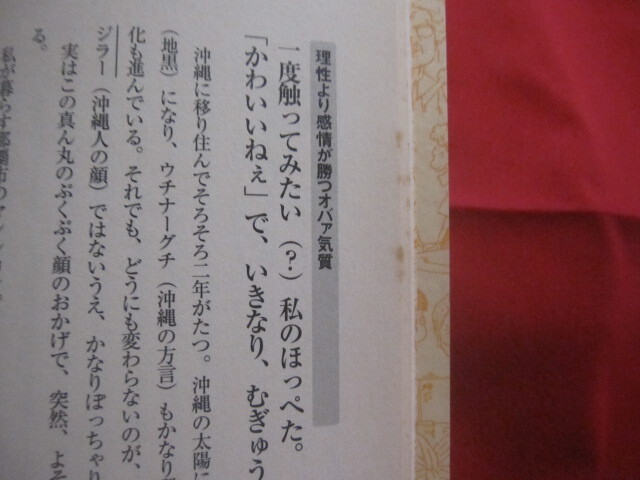 理性より感情が勝つオバァ気質
一度触ってみたい（？）私のほっぺた。
「かわいいねぇ」で、いきなり、むぎゅう
沖縄に移り住んでそろそろ二年がたつ。沖縄の太陽に
（地黒）になり、ウチナーグチ（沖縄の方言）もかなり
化も進んでいる。それでも、どうにも変わらないのが、
ジラー（沖縄人の顔）ではないうえ、かなりぽっちゃり
実はこの真ん丸のぷくぷく顔のおかげで、突然、よそ
る。
私が暮らす那覇市の